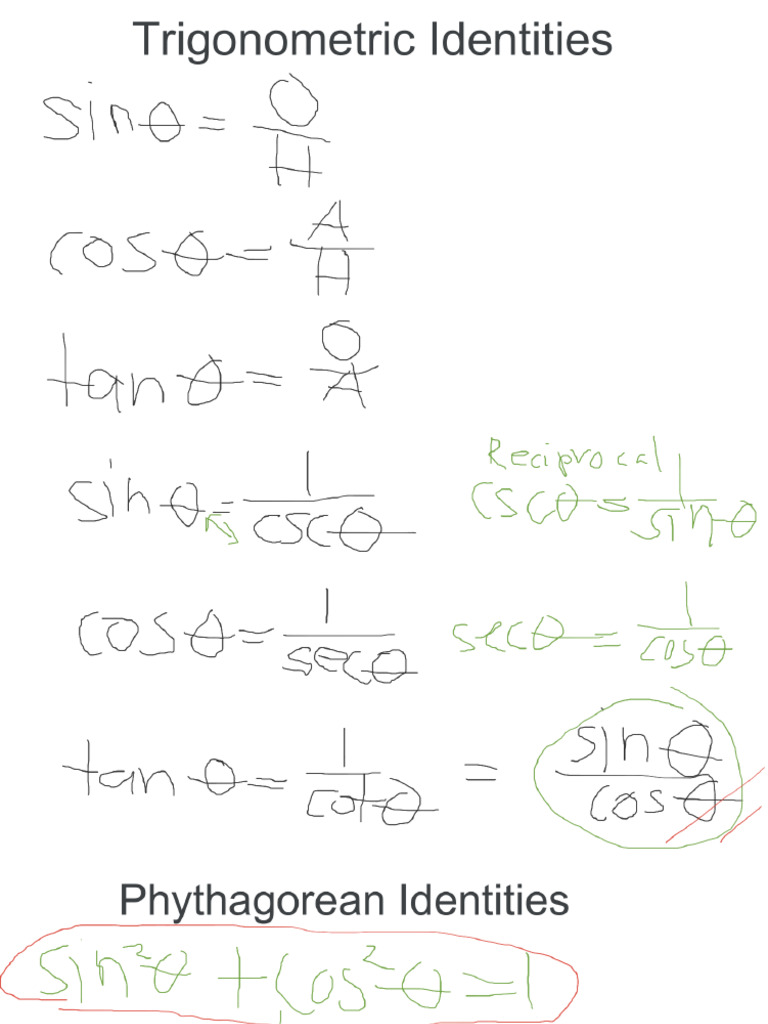 Trigonometric Identities
sinθ = O/H
cosθ = A/H
tanθ = O/A
Reciprocal
sinθ = 1/cscθ cscθ = 1/sinθ
cosθ = 1/secθ secθ = 1/cosθ
tanθ = 1/cotθ = sinθ/cosθ
Phythagorean Identities
sin²θ + cos²θ = 1